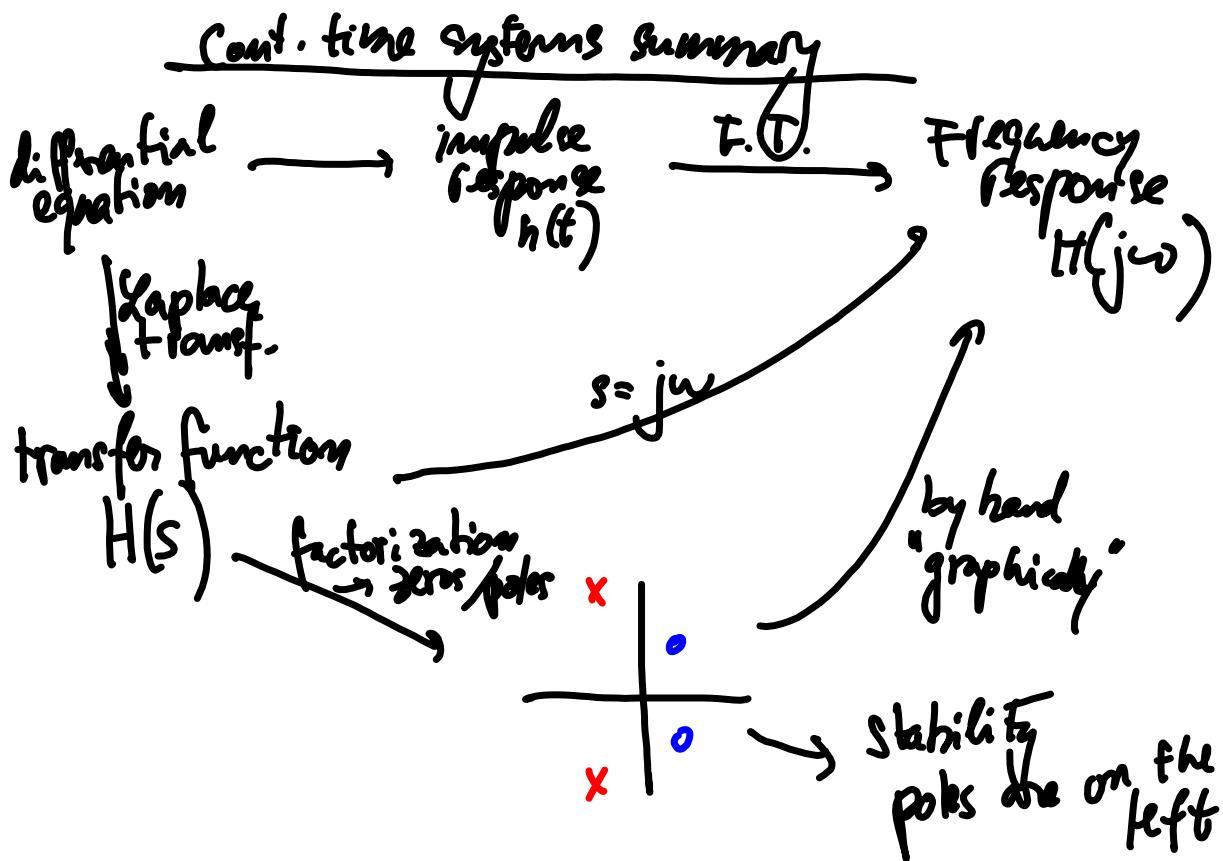 Cont. time systems summary
differential
equation
impulse
response
h(t)
F.T.
Frequency
response
H(jω)
Laplace
transf.
s=jω
transfer function
H(s)
factorization
→ zeros/poles
by hand
"graphically"
x
o
o
x
stability
poles are on the
left